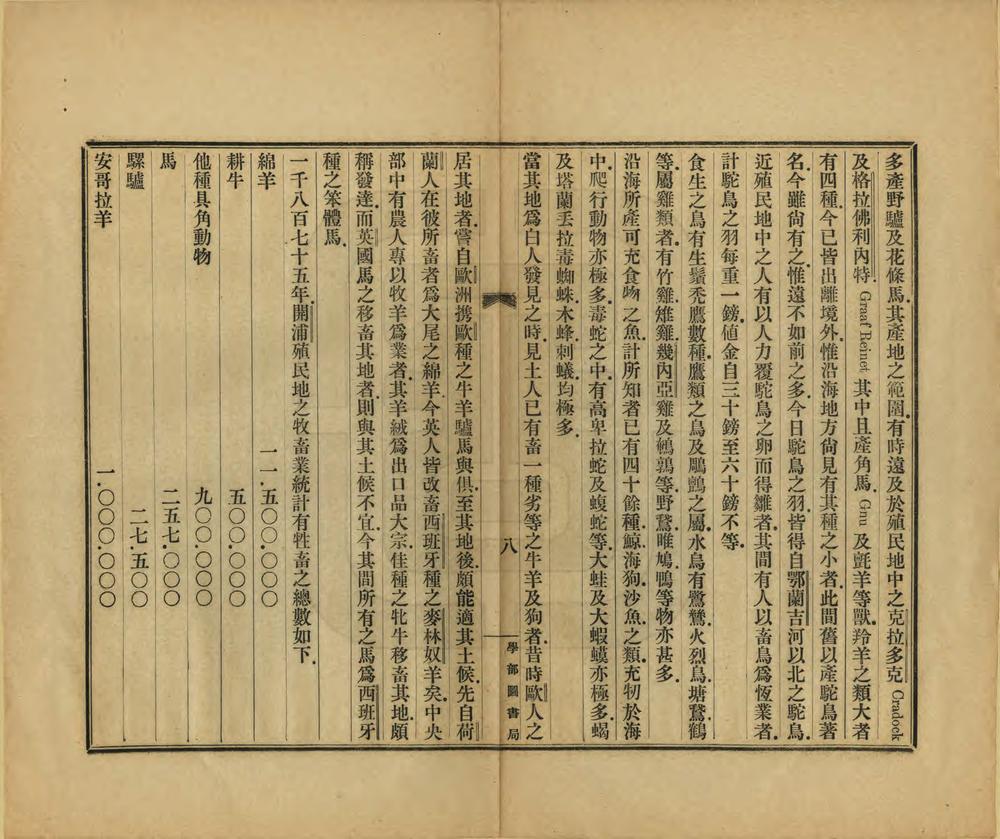 多產野驢及花條馬．其產地之範圍．有時遠及於殖民地中之克拉多克 Cradock
及格拉佛利內特．Graaf Reinet 其中且產角馬．Gnu 及氈羊等獸．羚羊之類大者
有四種．今已皆出離境外．惟沿海地方尙見有其種之小者．此間舊以產駝鳥著
名．今雖尙有之．惟遠不如前之多．今日駝鳥之羽．皆得自鄂蘭吉河以北之駝鳥．
近殖民地中之人有以人力覆駝鳥之卵而得雛者．其間有人以畜鳥爲恆業者．
計駝鳥之羽每重一鎊．値金自三十鎊至六十鎊不等．
食生之鳥有生鬚禿鷹數種．鷹類之鳥及鵰鷓之屬．水鳥有鷺鷥．火烈鳥．塘鵞鶴
等．屬雞類者．有竹雞．雉雞．幾內亞雞及鵪鶉等．野鵞．唯鳩．鴨等物亦甚多．
沿海所產可充食物之魚計所知者已有四十餘種．鯨．海狗．沙魚．之類．充牣於海
中．爬行動物亦極多．毒蛇之中．有高卑拉蛇及蝮蛇等．大蛙及大蝦蟆亦極多．蝎
及塔蘭丢拉毒蜘蛛．木蜂．刺蟻．均極多．
當其地爲白人發見之時．見土人已有畜一種劣等之牛羊及狗者．昔時歐人之
八
學部圖書局
居其地者．嘗自歐洲携歐種之牛羊驢馬與俱．至其地後．頗能適其土候．先自荷
蘭人在彼所畜者爲大尾之綿羊．今英人皆改畜西班牙種之麥林奴羊矣．中央
部中有農人專以牧羊爲業者．其羊絨爲出口品大宗．佳種之牝牛移畜其地．頗
稱發達．而英國馬之移畜其地者．則與其土候不宜．今其間所有之馬爲西班牙
種之笨體馬．
一千八百七十五年．開浦殖民地之牧畜業統計有牲畜之總數如下．
綿羊 一一．五〇〇．〇〇〇
耕牛 五〇〇．〇〇〇
他種具角動物 九〇〇．〇〇〇
馬 二五七．〇〇〇
騾驢 二七．五〇〇
安哥拉羊 一．〇〇〇．〇〇〇